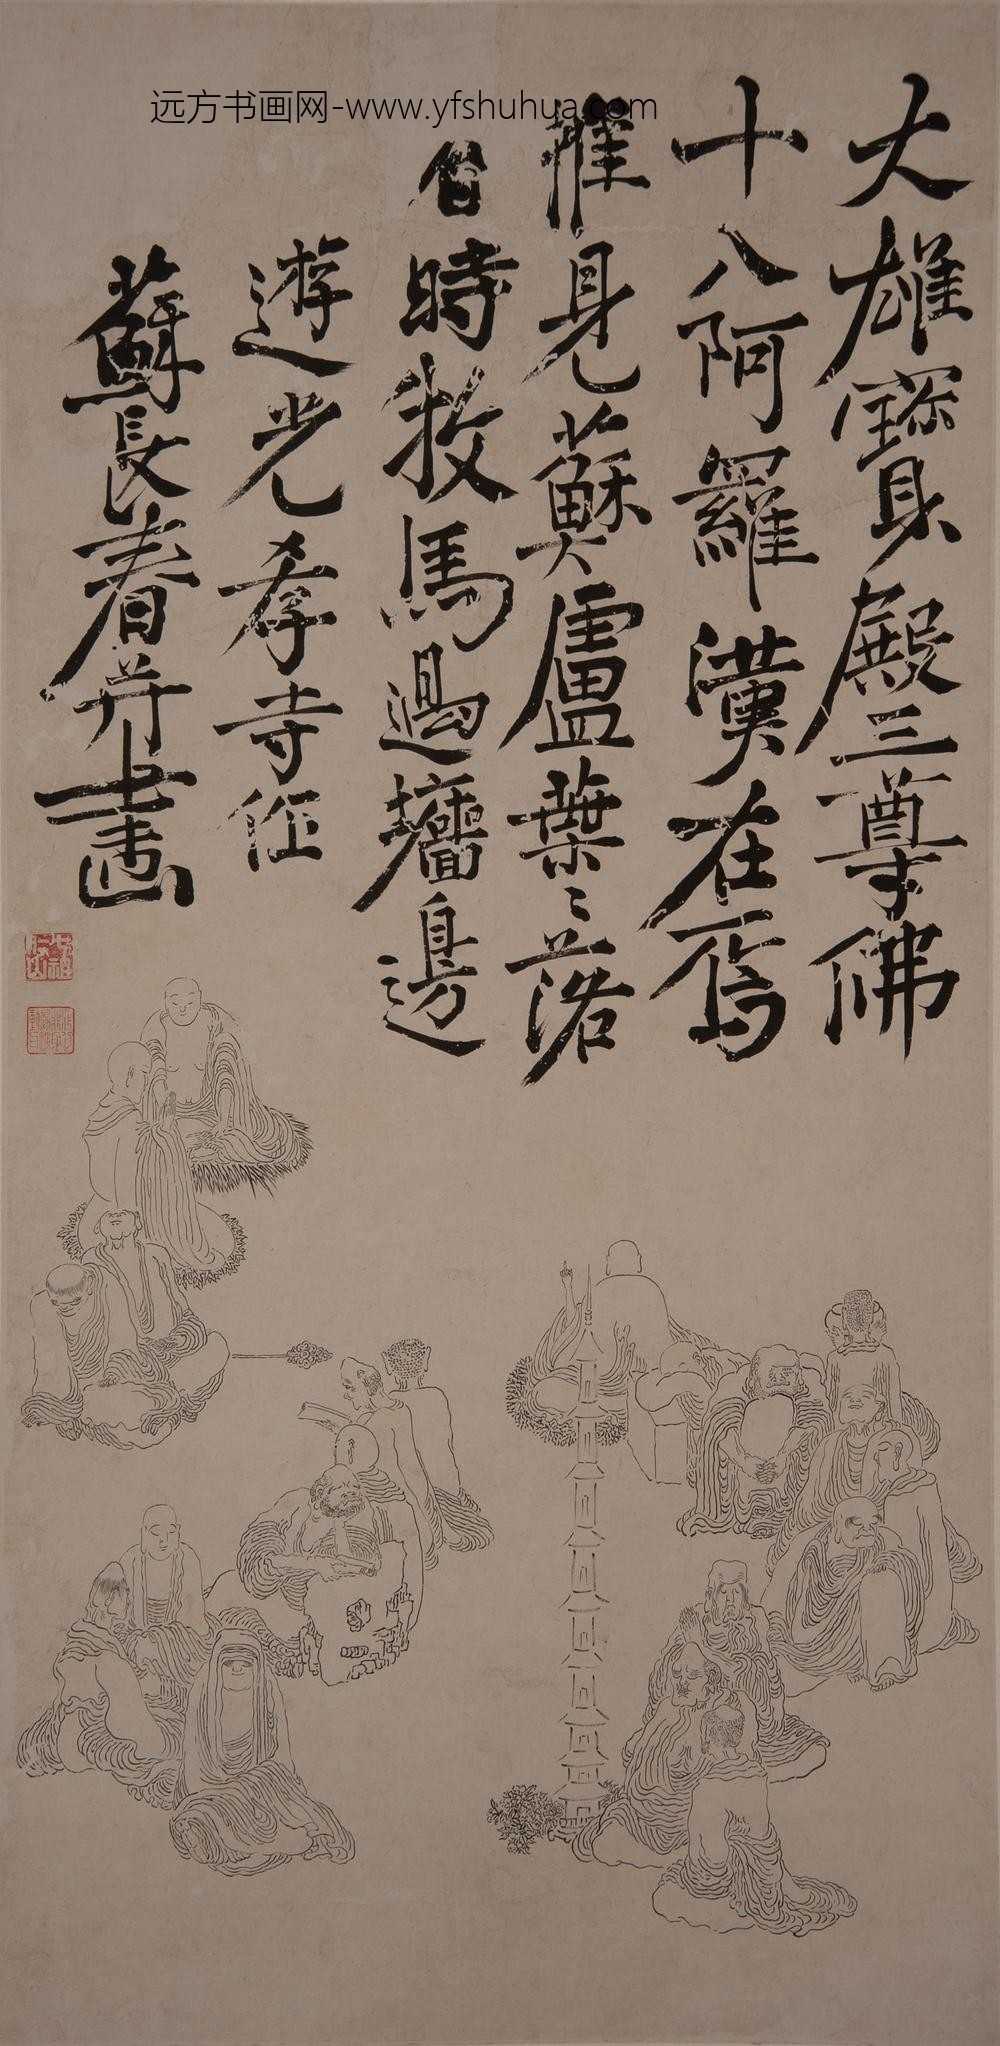 远方书画网-www.yfshuhua.com
大雄寶殿三尊佛
十八阿羅漢在焉
見蘇盧葉〻落
時牧馬過墻邊
遊光孝寺作
蘇長春并書